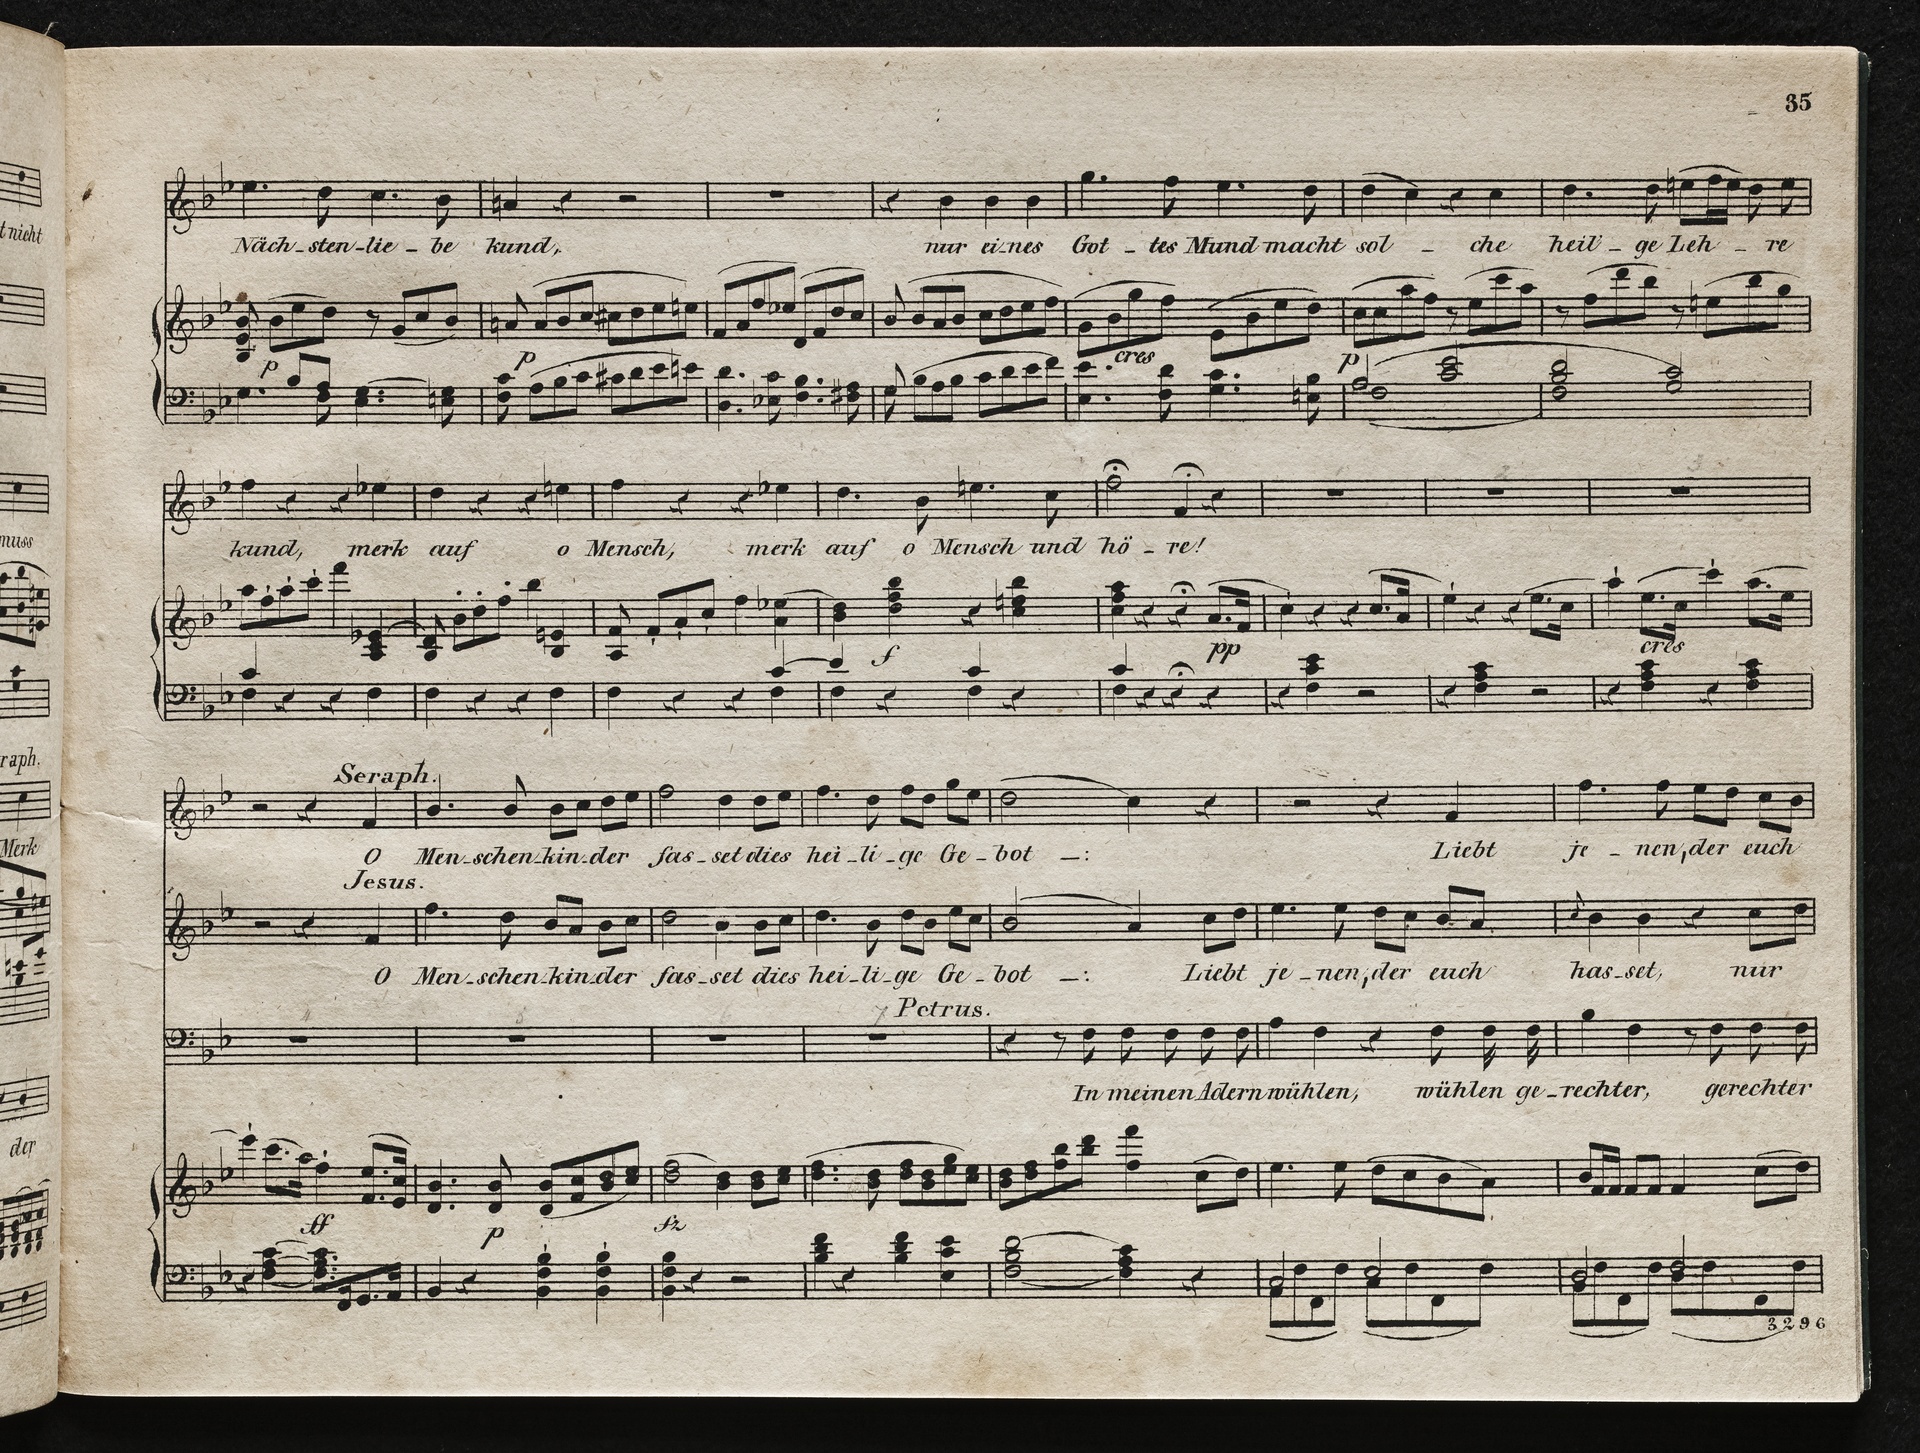 35
t nicht
Näch-sten-lie-be kund, nur ei-nes Got-tes Mund macht sol-che heil'-ge Leh-re
p p cres p
muss
kund, merk auf o Mensch, merk auf o Mensch und hö-re!
f pp cres
raph.
Seraph.
Merk
O Men-schen-kin-der fas-set dies hei-li-ge Ge-bot -: Liebt je-nen, der euch
Jesus.
O Men-schen-kin-der fas-set dies hei-li-ge Ge-bot -: Liebt je-nen, der euch has-set, nur
Petrus.
In meinen Adern wühlen, wühlen ge-rechter, gerechter
der
ff p fz
3296